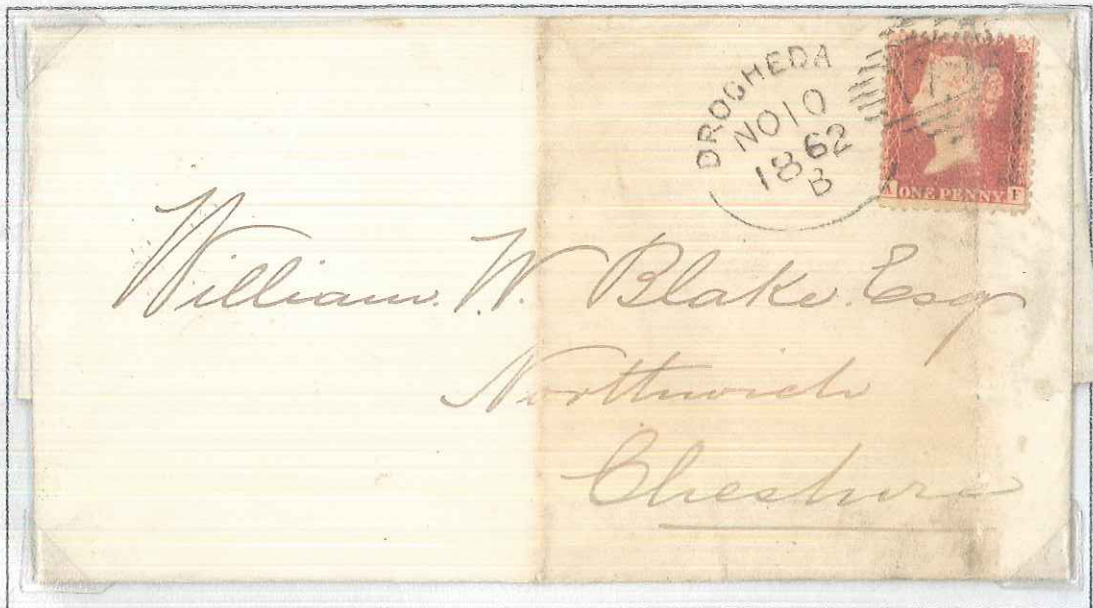 DROGHEDA
NO10
1862
B
A ONE PENNY F
William. W. Blake. Esqr
Northwich
Cheshire